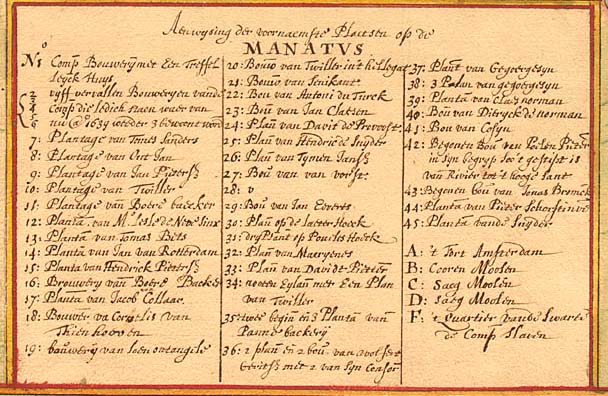 Aenwysing der voornaemste Plaetsen op de
MANATVS
No 1 Comp Bouwerij met Een Treffel
leyck Huys
2 vyff vervallen Bouweryen vande
3 Comp die ledich staen waer van
4
5 nu @ 1639 weeder 3 bewoont word
6
7: Plantage van Tomes Sanders
8: Plantage van
9: Plantage van Jan Pietersz
10: Plantage van Twiller
11: Plantage van Boere backer
12: Planta. van Mr Lesle de Neve Sinx
13: Planta van Tomas Bets
14: Planta van Jan van Rotterdam
15: Planta van Hendrick Pietersz
16: Brouwery van Boere Backer
17: Planta van Jacob Collaer
18: Bouwer va Cornelis van
Thienhooven
19: bouwerij van
20: Bouw van Twiller int hellegat
21: Bouw van Fenikant
22: Bou van Antoni du Turck
23: Bou van Jan Claesen
24: Plan van David de Provoost
25: Plan van Hendric de Snyder
26: Plan van Tymen Jansz
27: Bou van van vorst
28: v
29: Bou van Jan Everts
30: Plan op de laeter Hoeck
31: dry Plant op Poulus Hoeck
32: Plan van Maerynes
33: Plan van Davidt Pieters
34: nooten Eylan met Een Plan
van Twiller
35: twee begin en 3 Planta van
Panne backery
36: 2 plan en 2 bou. van wolfert
Gerritsz met 2 van syn Consor
37: Plant van Gegoergesyn
38: 3 van gegoergesyn
39: Planta van Claes norman
40: Bou van Diryck de norman
41: Bou van Cosyn
42: Begonen Bou van Pieter
in syn begryp soo 't gefrist is
van Rivier tot 't hooge Lant
43: Begonen bou van Jonas Bronck
44: Planta van Pieter Schorsteinve
45: Planta vande Snyder
A: 't Fort Amsterdam
B: Cooren Moolen
C: Saeg Moolen
D: Saeg Moolen
F: 't Quartier vande Swarte
de Comp Slaven